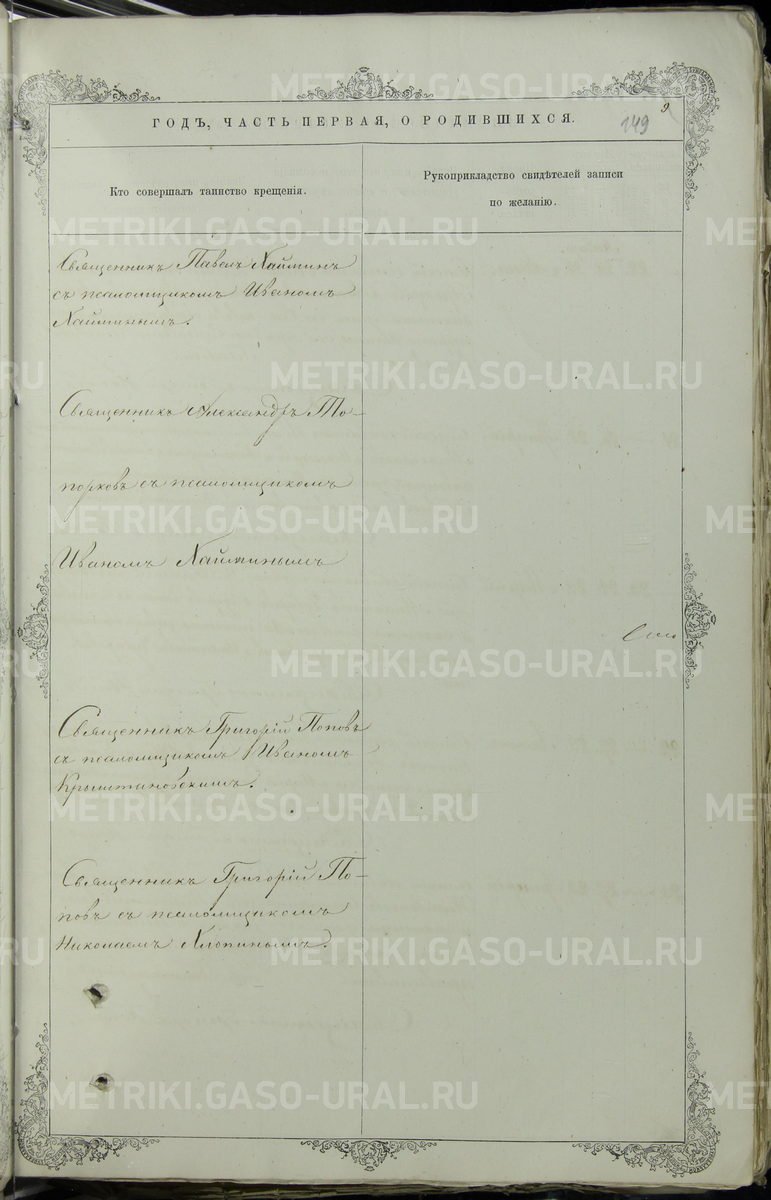 9
149
ГОДЪ, ЧАСТЬ ПЕРВАЯ, О РОДИВШИХСЯ.
Кто совершалъ таинство крещенія.
Рукоприкладство свидѣтелей записи
по желанію.
Священникъ Павелъ Хайминъ
съ псаломщикомъ Иваномъ
Хайминымъ.
Священникъ Александръ То-
порковъ съ псаломщикомъ
Иваномъ Хайминымъ
Священникъ Григорій Поповъ
съ псаломщикомъ Иваномъ
Священникъ Григорій По-
повъ съ псаломщикомъ
Николаемъ Хлопинымъ.
METRIKI.GASO-URAL.RU